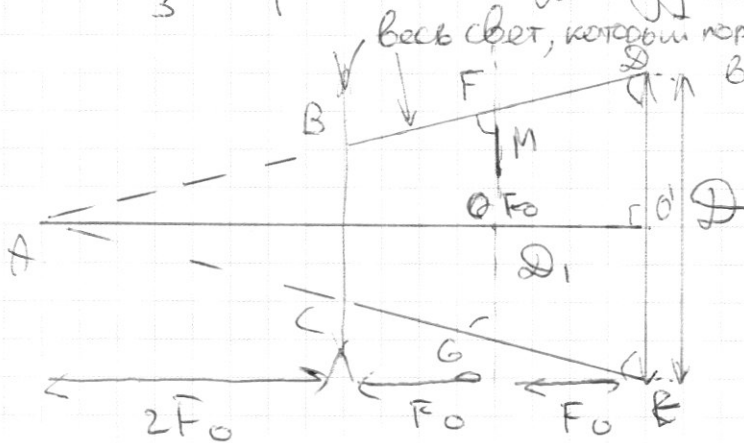 весь свет, который
в
B
F
D
M
O F₀
O'
D
A
D₁
C
G
E
2F₀
F₀
F₀